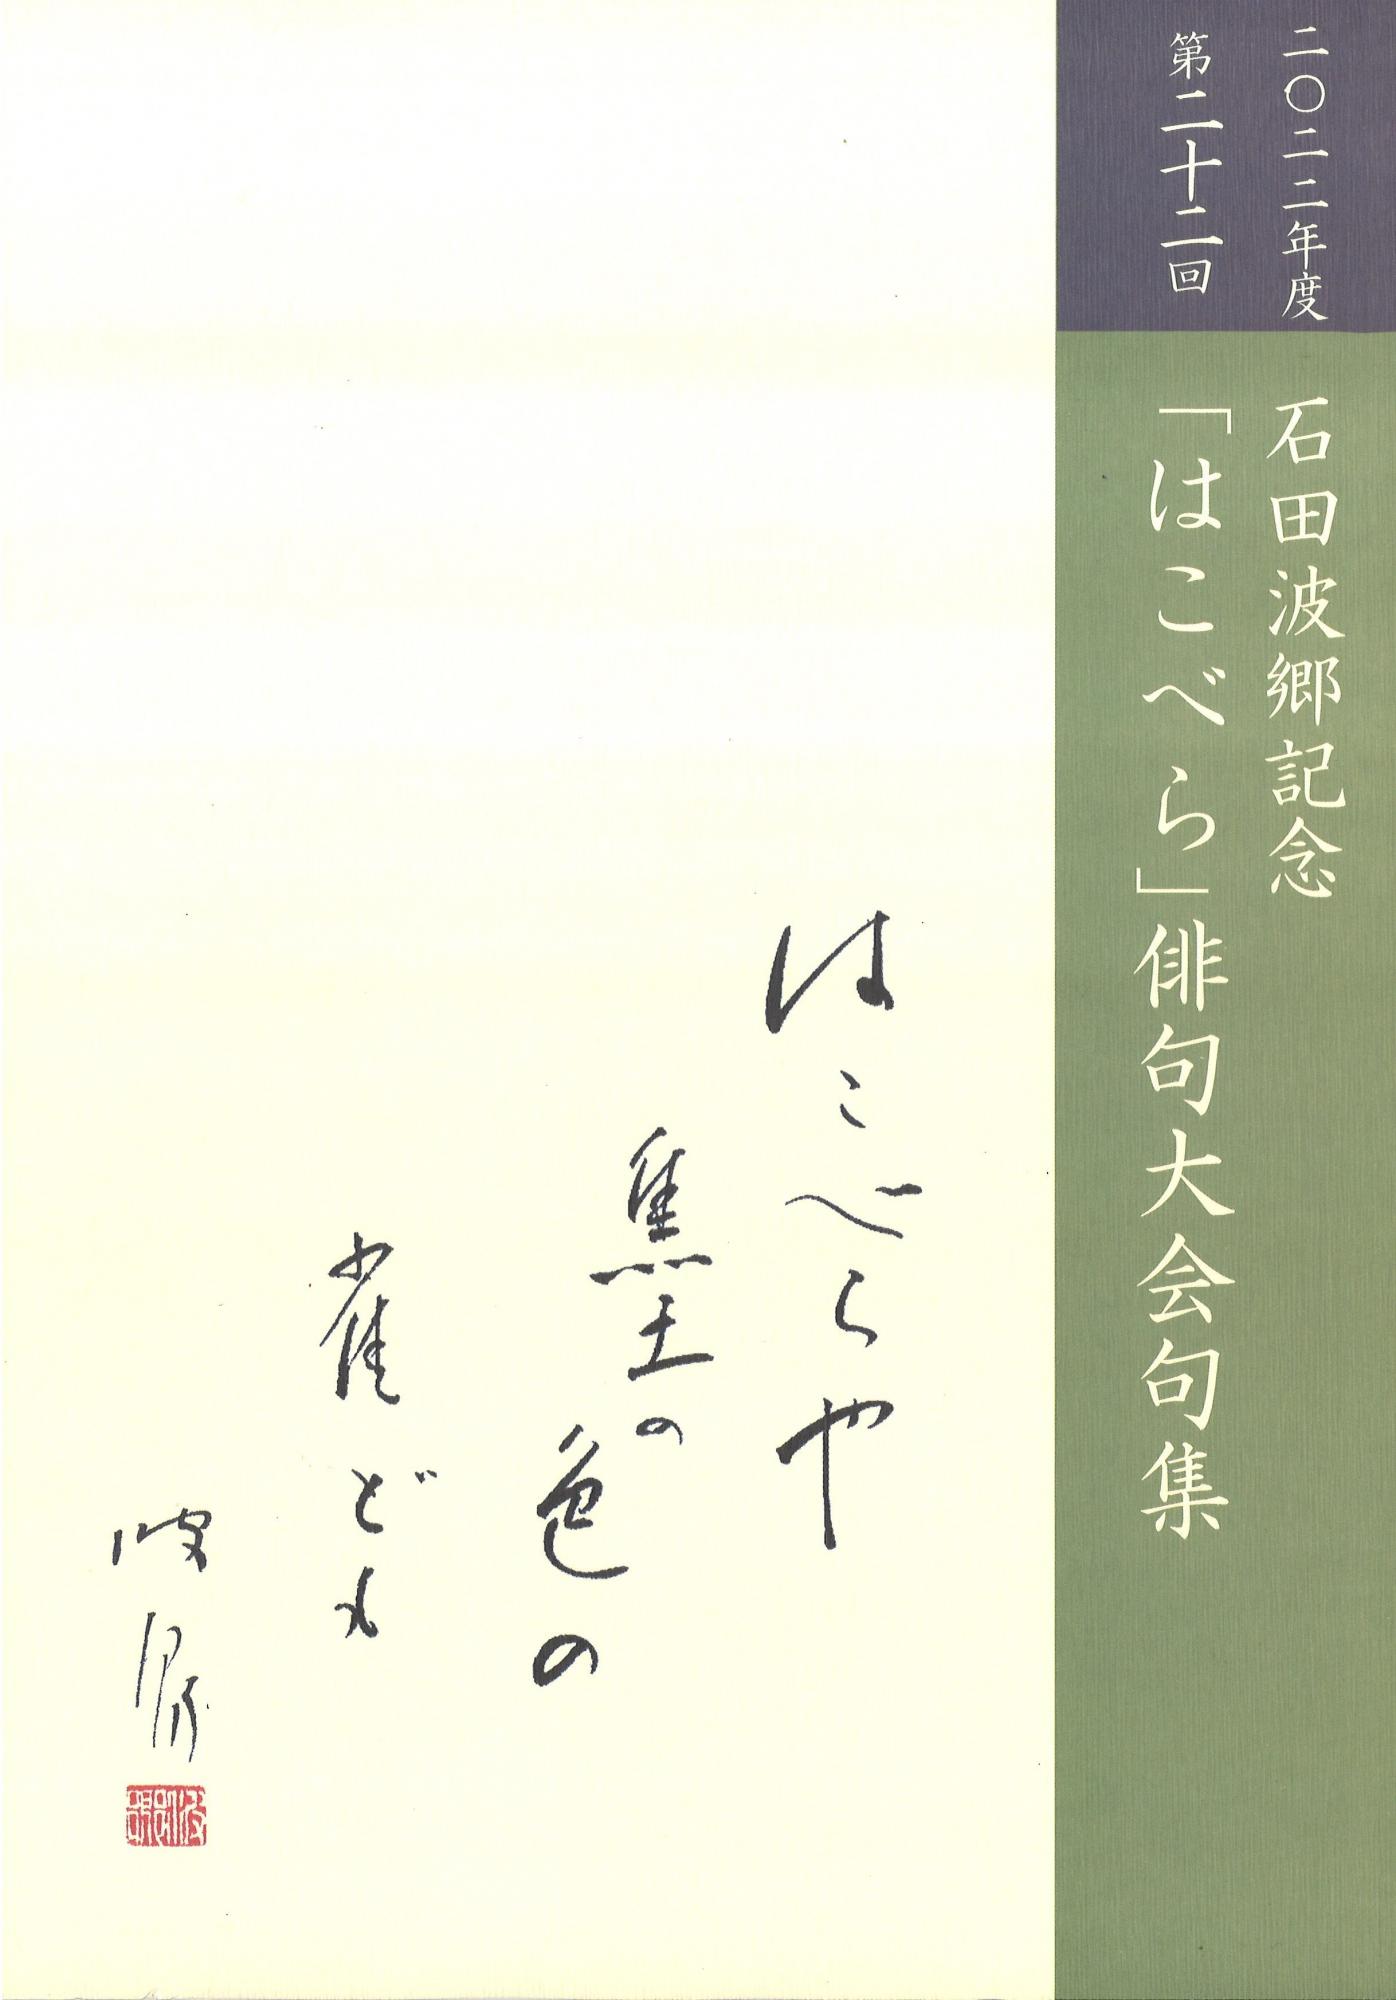 二〇二二年度
第二十二回
石田波郷記念
「はこべら」俳句大会句集
はこべらや
焦土の
色の
雀ども
波郷